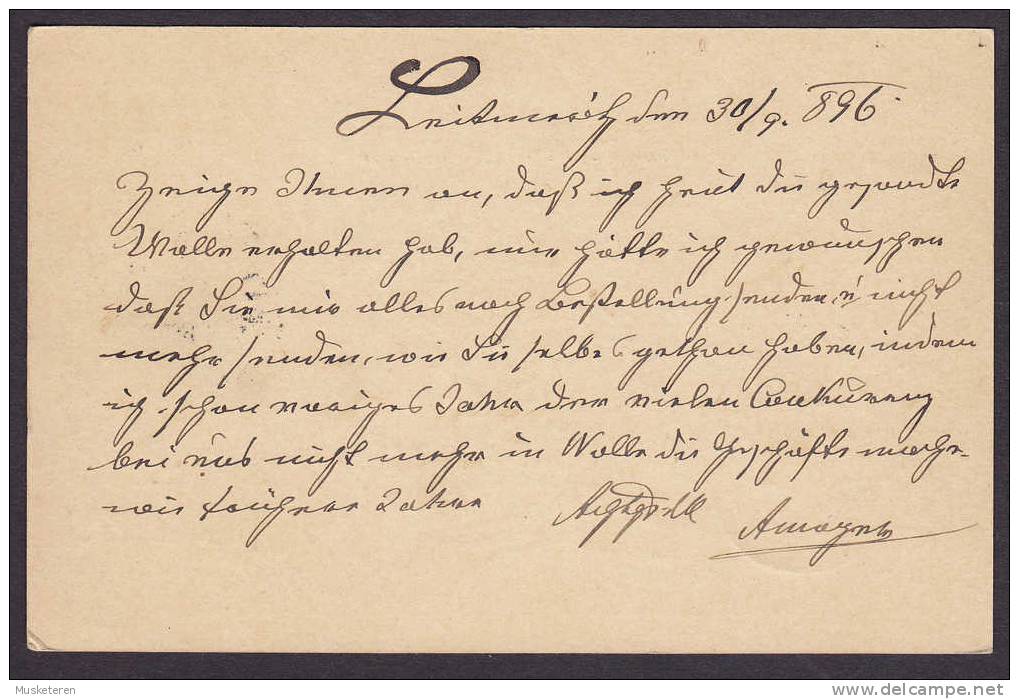 Leitmeritz den 30/9. 896.
Zeige Ihnen an, daß ich heut die gesandte
Wolle erhalten hab, nur hätte ich gewünschen
daß Sie mir alles nach Bestellung senden, u nicht
mehr senden, wie Sie selbes gethan haben, indem
ich schon voriges Jahr der vielen Conkurenz
bei uns nicht mehr in Wolle die Geschäfte mache
wie frühere Jahre
Musketeren
www.delcampe.net